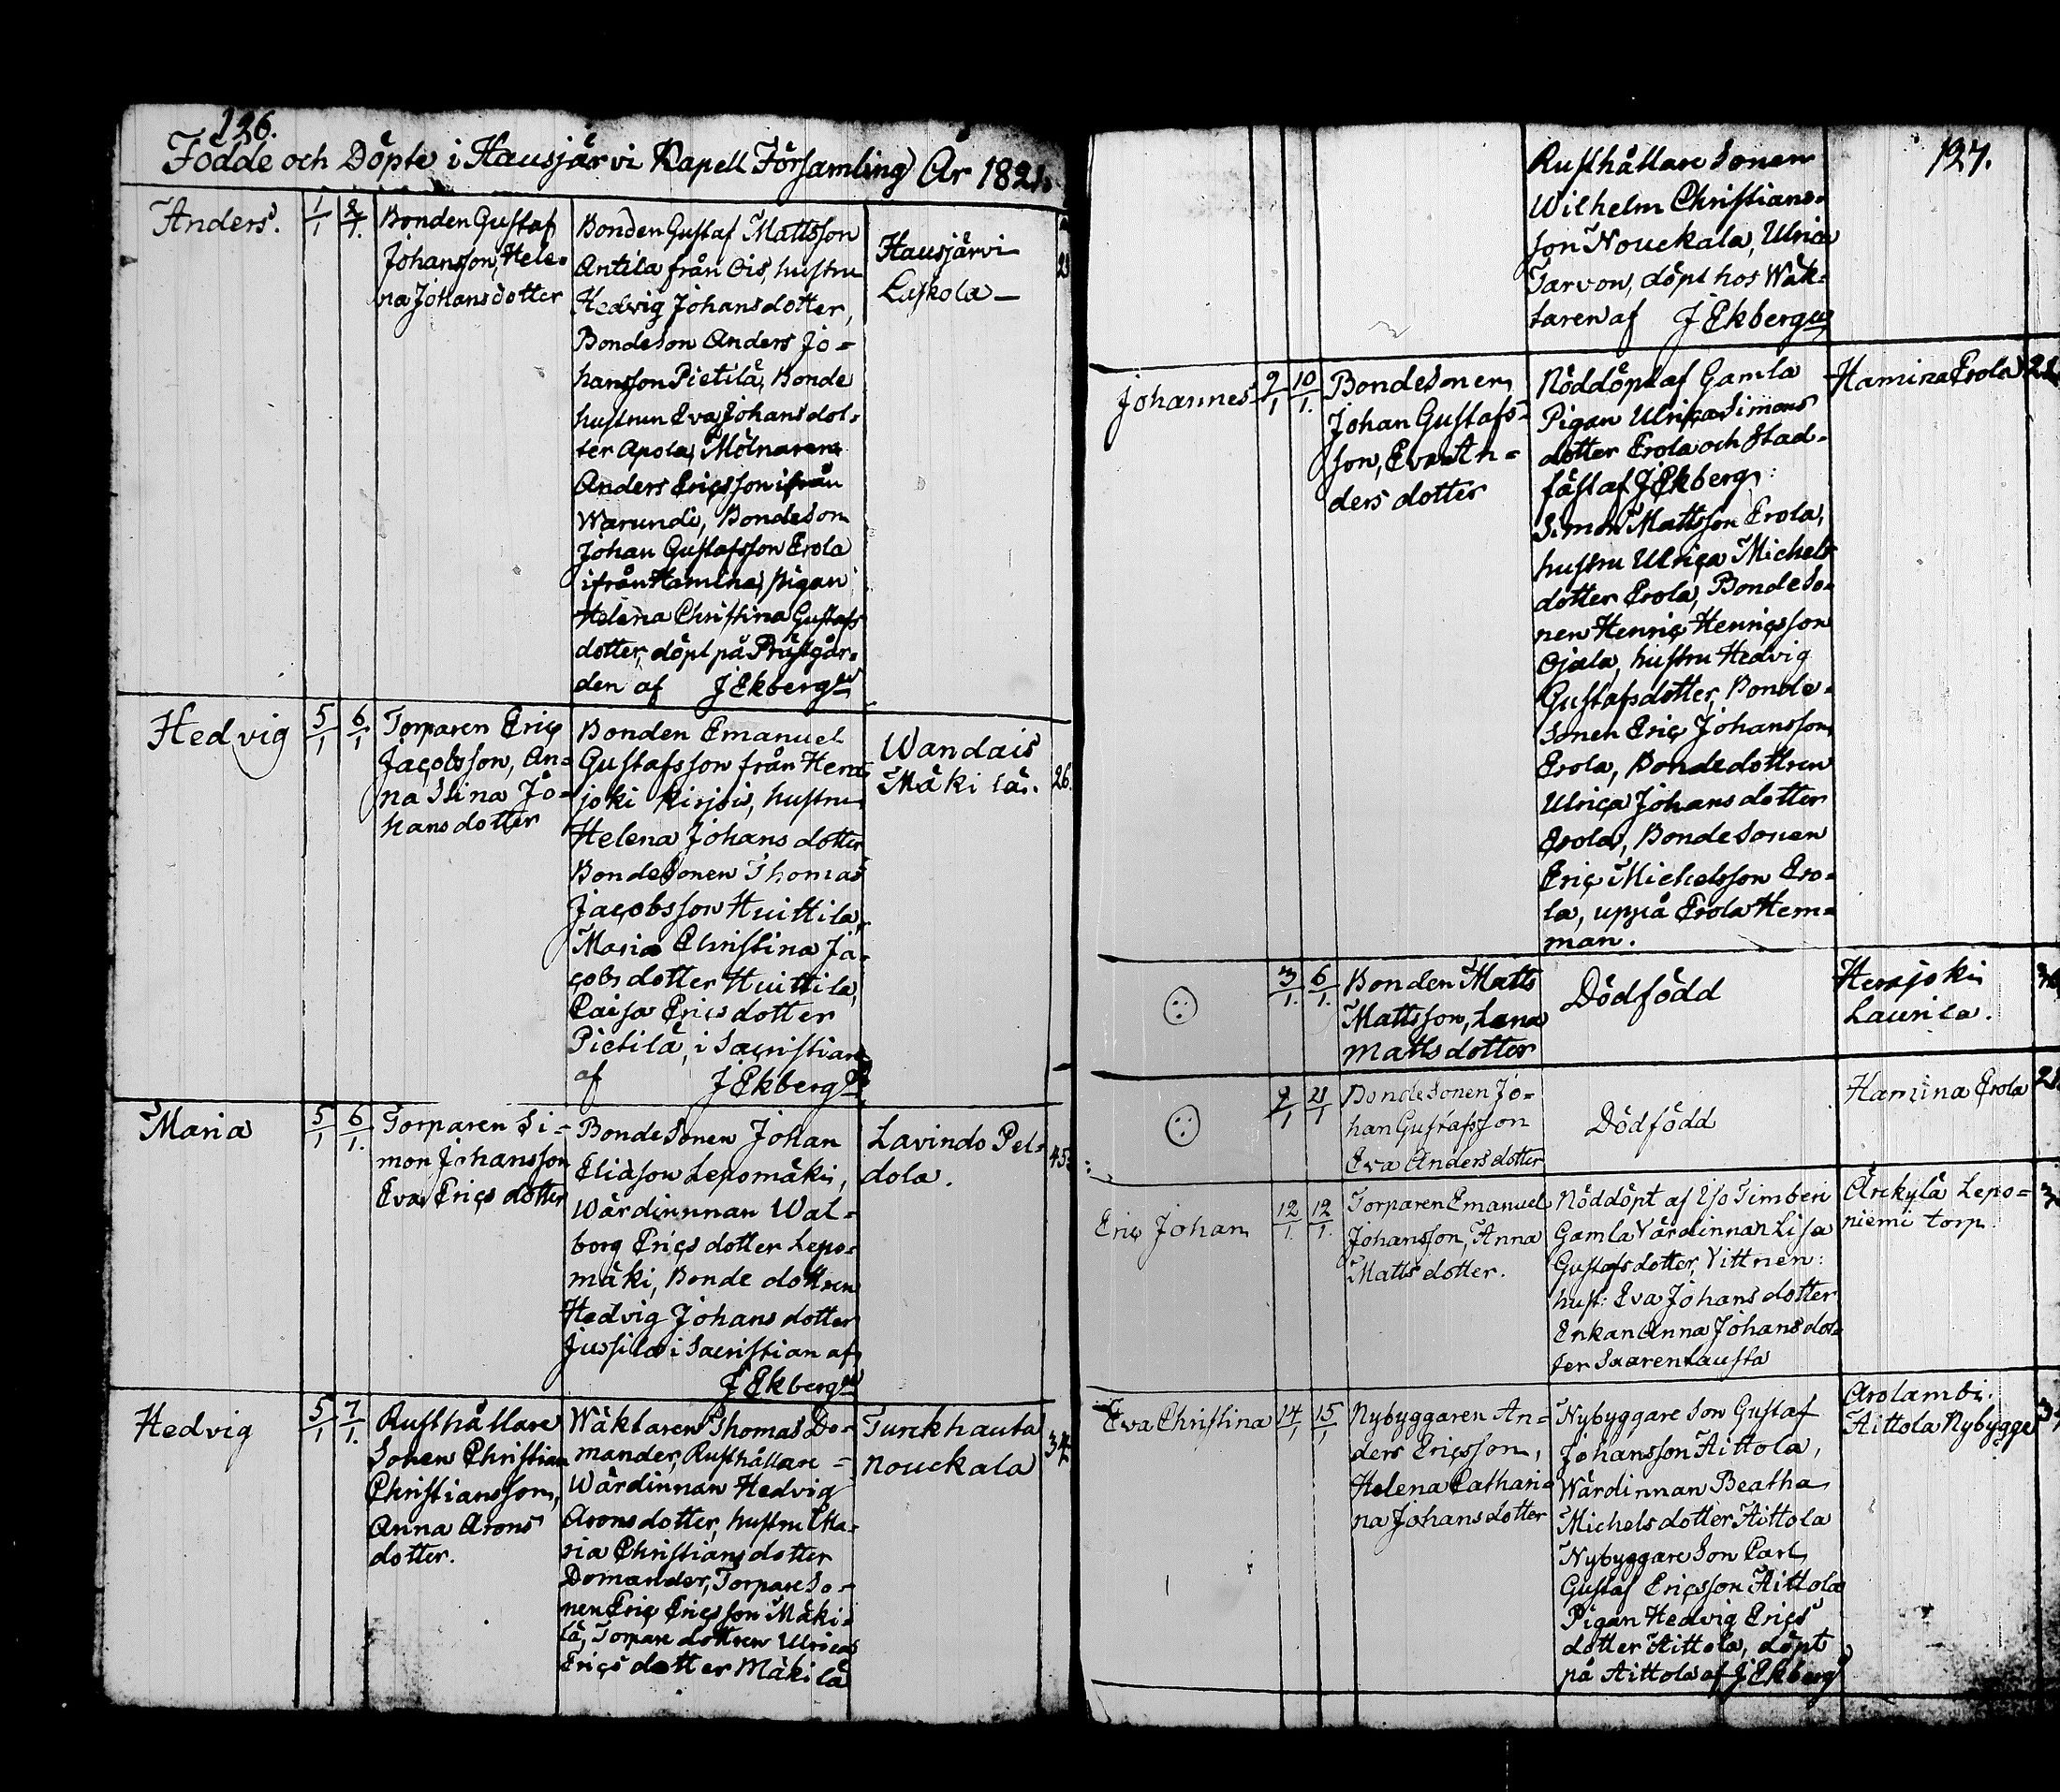 126.
Födde och Döpte i Hausjärvi Kapell Församling År 1821.
Anders.
1/1
8/1.
Bonden Gustaf
Johansson, Hele-
na Johansdotter
Bonden Gustaf Mattsson
Antila från Ois, hustru
Hedvig Johansdotter,
Bondeson Anders Jo-
hansson Pietilä, Bonde
hustrun Eva Johansdot-
ter Apola, Mölnaren
Anders Ericsson ifrån
Warundi, Bondeson
Johan Gustafsson Erola
ifrån Hamina, pigan
Helena Christina Gustafs
dotter, döpt på Prästgår-
den af J Ekberg
Hausjärvi
Laskola
Hedvig
5/1
6/1
Torparen Eric
Jacobsson, An-
na Stina Jo-
hansdotter
Bonden Emanuel
Gustafsson från Hera
joki Kirjois, hustru
Helena Johansdotter
Bondesonen Thomas
Jacobsson Huittila,
Maria Christina Ja-
cobsdotter Huittila,
Caisa Ericsdotter
Pietilä, i Sacristian
af J Ekberg
Wandais
Mäkilä.
26.
Maria
5/1
6/1.
Torparen Si-
mon Johansson
Eva Erics dotter
Bondesonen Johan
Eliäson Lepomäki,
Wärdinnnan Wal-
borg Erics dotter Lepo-
mäki, Bonde dottren
Hedvig Johans dotter
Jussila i Sacristian af
J Ekberg
Lavindo Pel-
dola.
45.
Hedvig
5/1
7/1.
Rusthållare
Sonen Christian
Christiansson,
Anna Arons
dotter.
Wäktaren Thomas Do-
mander, Rusthållare-
Wärdinnan Hedvig
Aronsdotter, hustru Ma-
ria Christiansdotter
Domander, Torpareso-
nen Eric Ericsson Mäki-
lä, Torpare dottren Ulrica
Erics dotter Mäkilä
Turckhauta
Nouckala
34
127.
Rusthållare Sonen
Wilhelm Christians-
son Nouckala, Ulrica
Tarvon, döpt hos Wäk-
taren af J Ekberg
Johannes
9/1
10/1.
Bondesonen
Johan Gustafs-
son, Eva An-
ders dotter
Nöddöpt af Gamla
Pigan Ulrica Simons
dotter Erola och Stad-
fäst af J Ekberg:
Simon Mattsson Erola,
hustru Ulrica Michels
dotter Erola, Bondeso-
nen Henric Henricsson
Ojala, hustru Hedvig
Gustafsdotter, Bonde-
Sonen Eric Johansson
Erola, Bondedottren
Ulrica Johansdotter
Erola, Bondesonen
Eric Michelsson Ero-
la, uppå Erola Hem-
man.
Hamina Erola
3/1.
6/1.
Bonden Matts
Mattsson, Lena
Mattsdotter
Dödfödd
Herajoki
Laurila.
9/1
21/1
Bondesonen Jo-
han Gustafsson
Eva Andersdotter
Dödfödd
Hamina Erola
Eric Johan
12/1.
12/1.
Torparen Emanuel
Johansson, Anna
Matts dotter.
Nöddöpt af Iso Timberi
Gamla Värdinnan Lisa
Gustafsdotter, Vittnen:
hust: Eva Johansdotter
Enkan Anna Johansdot-
ter Saarenlausta
Ärckylä Lepo-
niemi torp
Eva Christina
14/1
15/1
Nybyggaren An-
ders Ericsson,
Helena Cathari-
na Johansdotter
Nybyggare Son Gustaf
Johansson Aittola,
Wärdinnan Beatha
Michelsdotter Aittola
Nybyggare Son Carl
Gustaf Ericsson Aittola
Pigan Hedvig Erics
dotter Aittola, döpt
på Aittola af J Ekberg
Arolambi.
Aittola Nybygge